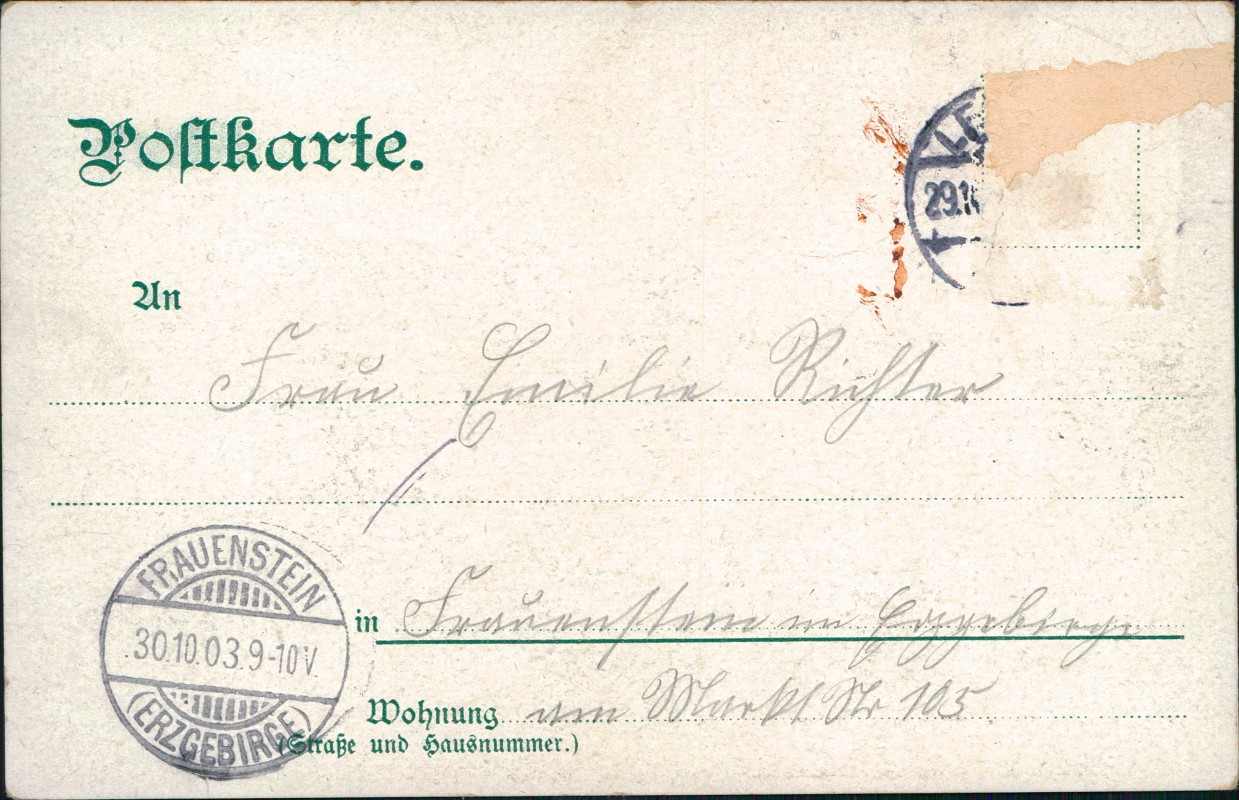 Postkarte.
29.10
An
Frau Emilie Richter
FRAUENSTEIN
30.10.03.9-10V.
(ERZGEBIRGE)
in Frauenstein im Erzgebirge
Wohnung am Markt Nr 105
(Straße und Hausnummer.)